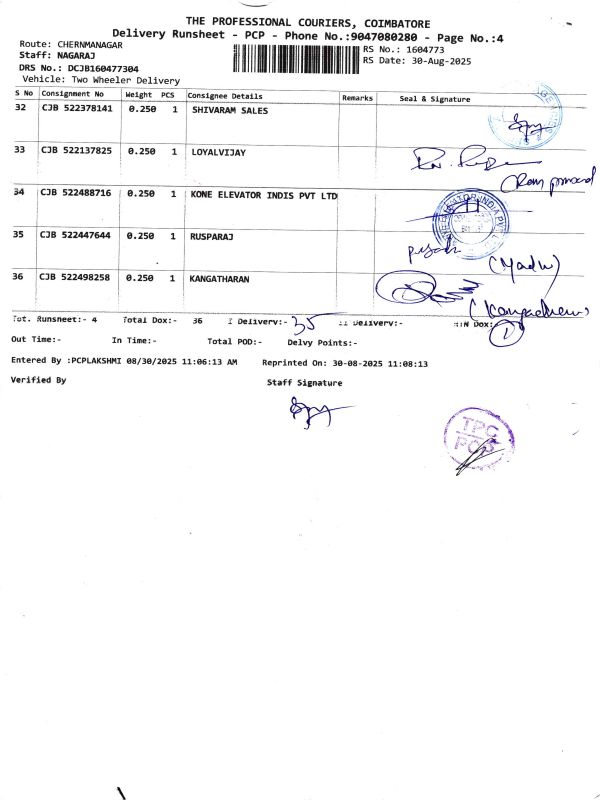 THE PROFESSIONAL COURIERS, COIMBATORE
Delivery Runsheet - PCP - Phone No.:9047080280 - Page No.:4
Route: CHERNMANAGAR
RS No.: 1604773
Staff: NAGARAJ
RS Date: 30-Aug-2025
DRS No.: DCJB160477304
Vehicle: Two Wheeler Delivery
S No Consignment No Weight PCS Consignee Details Remarks Seal & Signature
32 CJB 522378141 0.250 1 SHIVARAM SALES
33 CJB 522137825 0.250 1 LOYALVIJAY
34 CJB 522488716 0.250 1 KONE ELEVATOR INDIS PVT LTD
35 CJB 522447644 0.250 1 RUSPARAJ
(Madhu)
36 CJB 522498258 0.250 1 KANGATHARAN
Tot. Runsheet:- 4 Total Dox:- 36 I Delivery:- 35 II Delivery:- Dox:- 1
Out Time:- In Time:- Total POD:- Delvy Points:-
Entered By :PCPLAKSHMI 08/30/2025 11:06:13 AM Reprinted On: 30-08-2025 11:08:13
Verified By Staff Signature
TPC